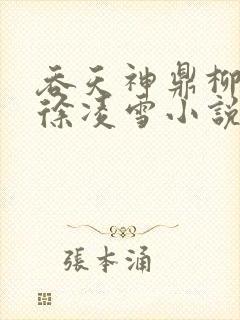 吞天神鼎柳
徐凌雪小說
張本涌